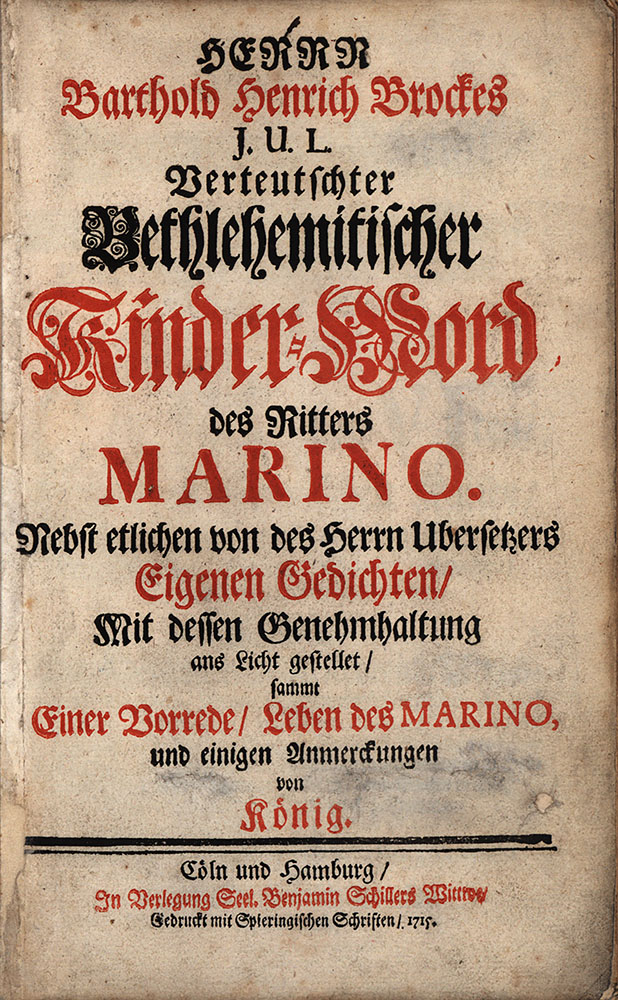 HERRN
Barthold Henrich Brockes
J. U. L.
Verteutschter
Bethlehemitischer
Kinder-Mord,
des Ritters
MARINO.
Nebst etlichen von des Herrn Ubersetzers
Eigenen Gedichten/
Mit dessen Genehmhaltung
ans Licht gestellet/
sammt
Einer Vorrede/ Leben des MARINO,
und einigen Anmerckungen
von
König.
Cöln und Hamburg/
In Verlegung Seel. Benjamin Schillers Wittwe/
Gedruckt mit Spieringischen Schriften/ 1715.